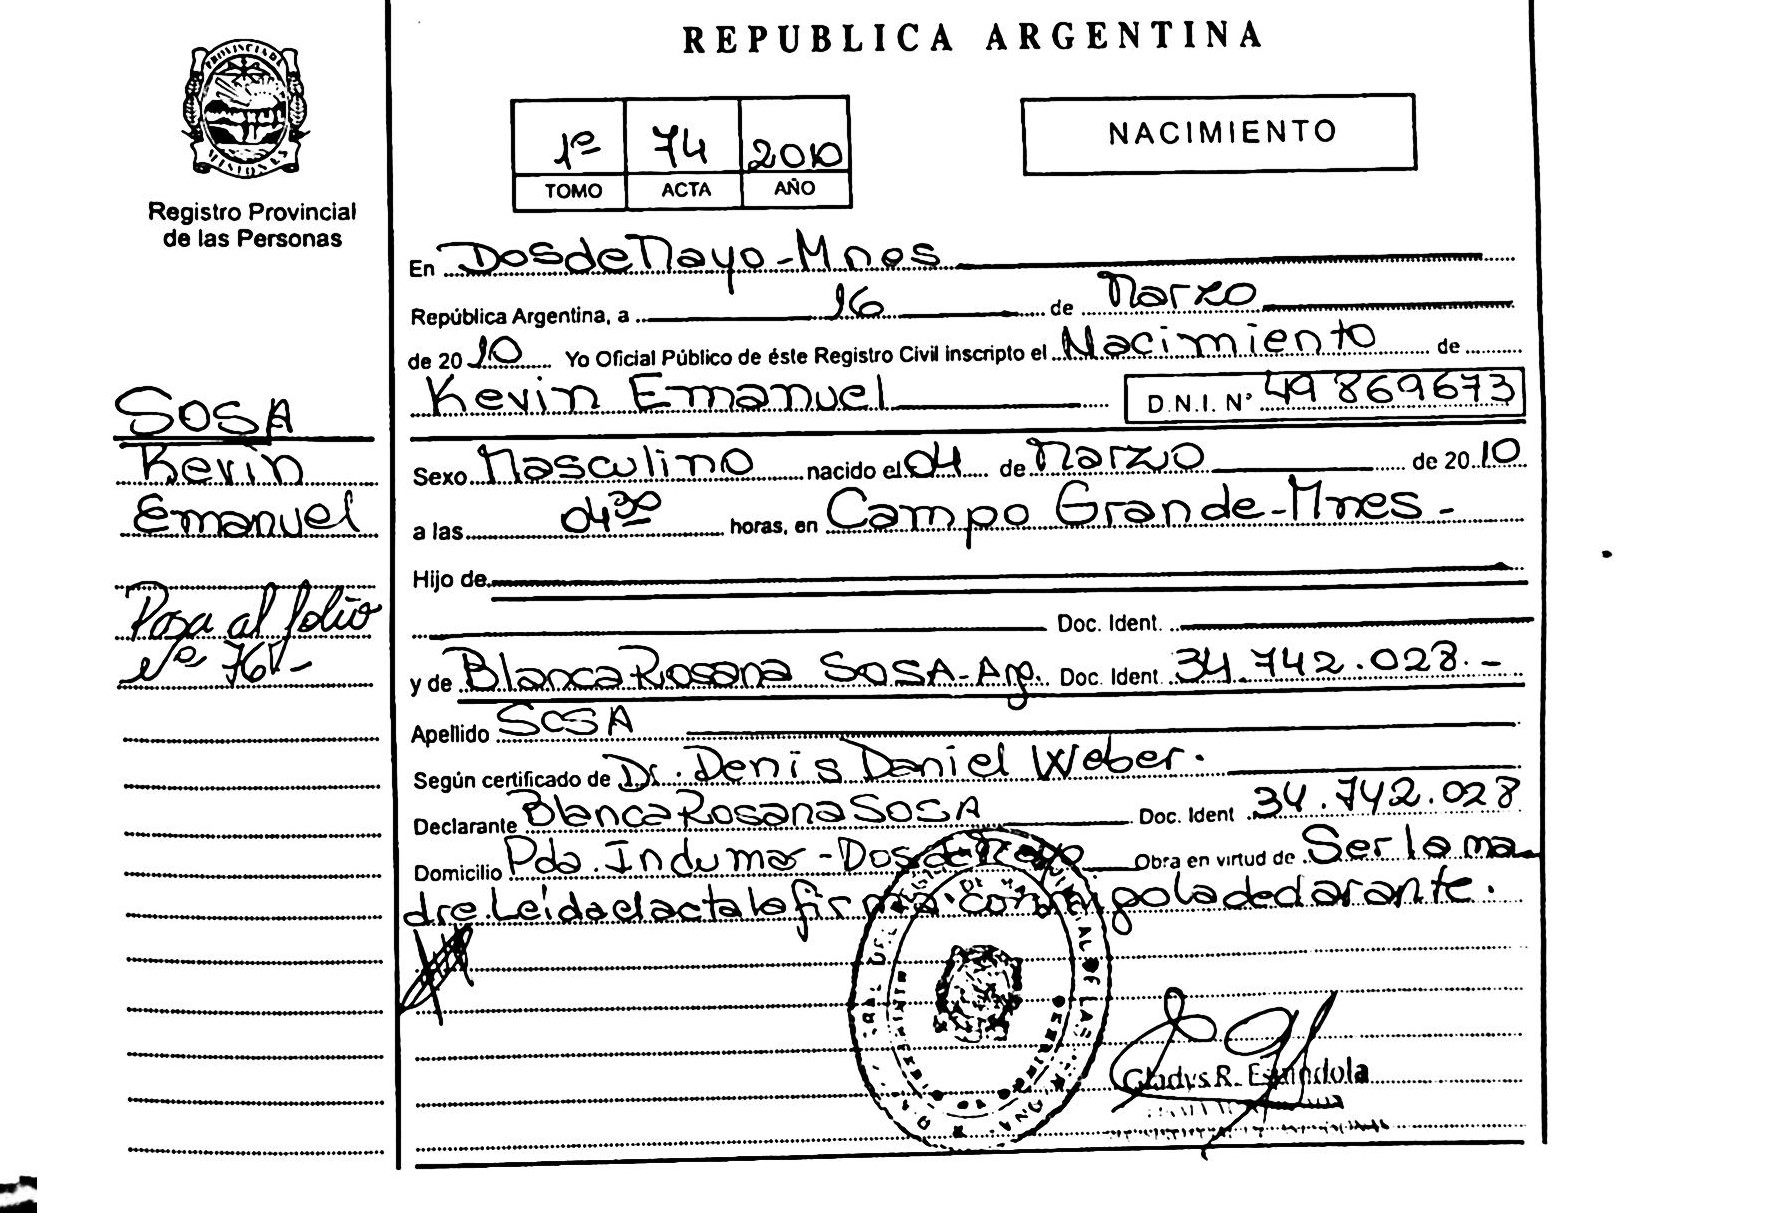 REPUBLICA ARGENTINA
PROVINCIA DE
MISIONES
Registro Provincial
de las Personas
1º 74 2010
TOMO ACTA AÑO
NACIMIENTO
En Dos de Mayo - Mnes
República Argentina, a 16 de Marzo
de 2010 Yo Oficial Público de éste Registro Civil inscripto el Nacimiento de
Kevin Emanuel D.N.I. Nº 49 869673
Sexo Masculino nacido el 04 de Marzo de 2010
a las 04 30 horas, en Campo Grande - Mnes -
Hijo de
Doc. Ident.
y de Blanca Rosana SOSA - Arg. Doc. Ident. 34.742.028.-
Apellido SOSA
Según certificado de Dr. Denis Daniel Weber.
Declarante Blanca Rosana SOSA Doc. Ident. 34.742.028
Domicilio Pda. Indumar - Dos de Mayo Obra en virtud de Ser la ma
dre. Leída el acta la firma conmigo la declarante.
SOSA
Kevin
Emanuel
Pasa al folio
Nº 76V-
Gladys R. Espíndola